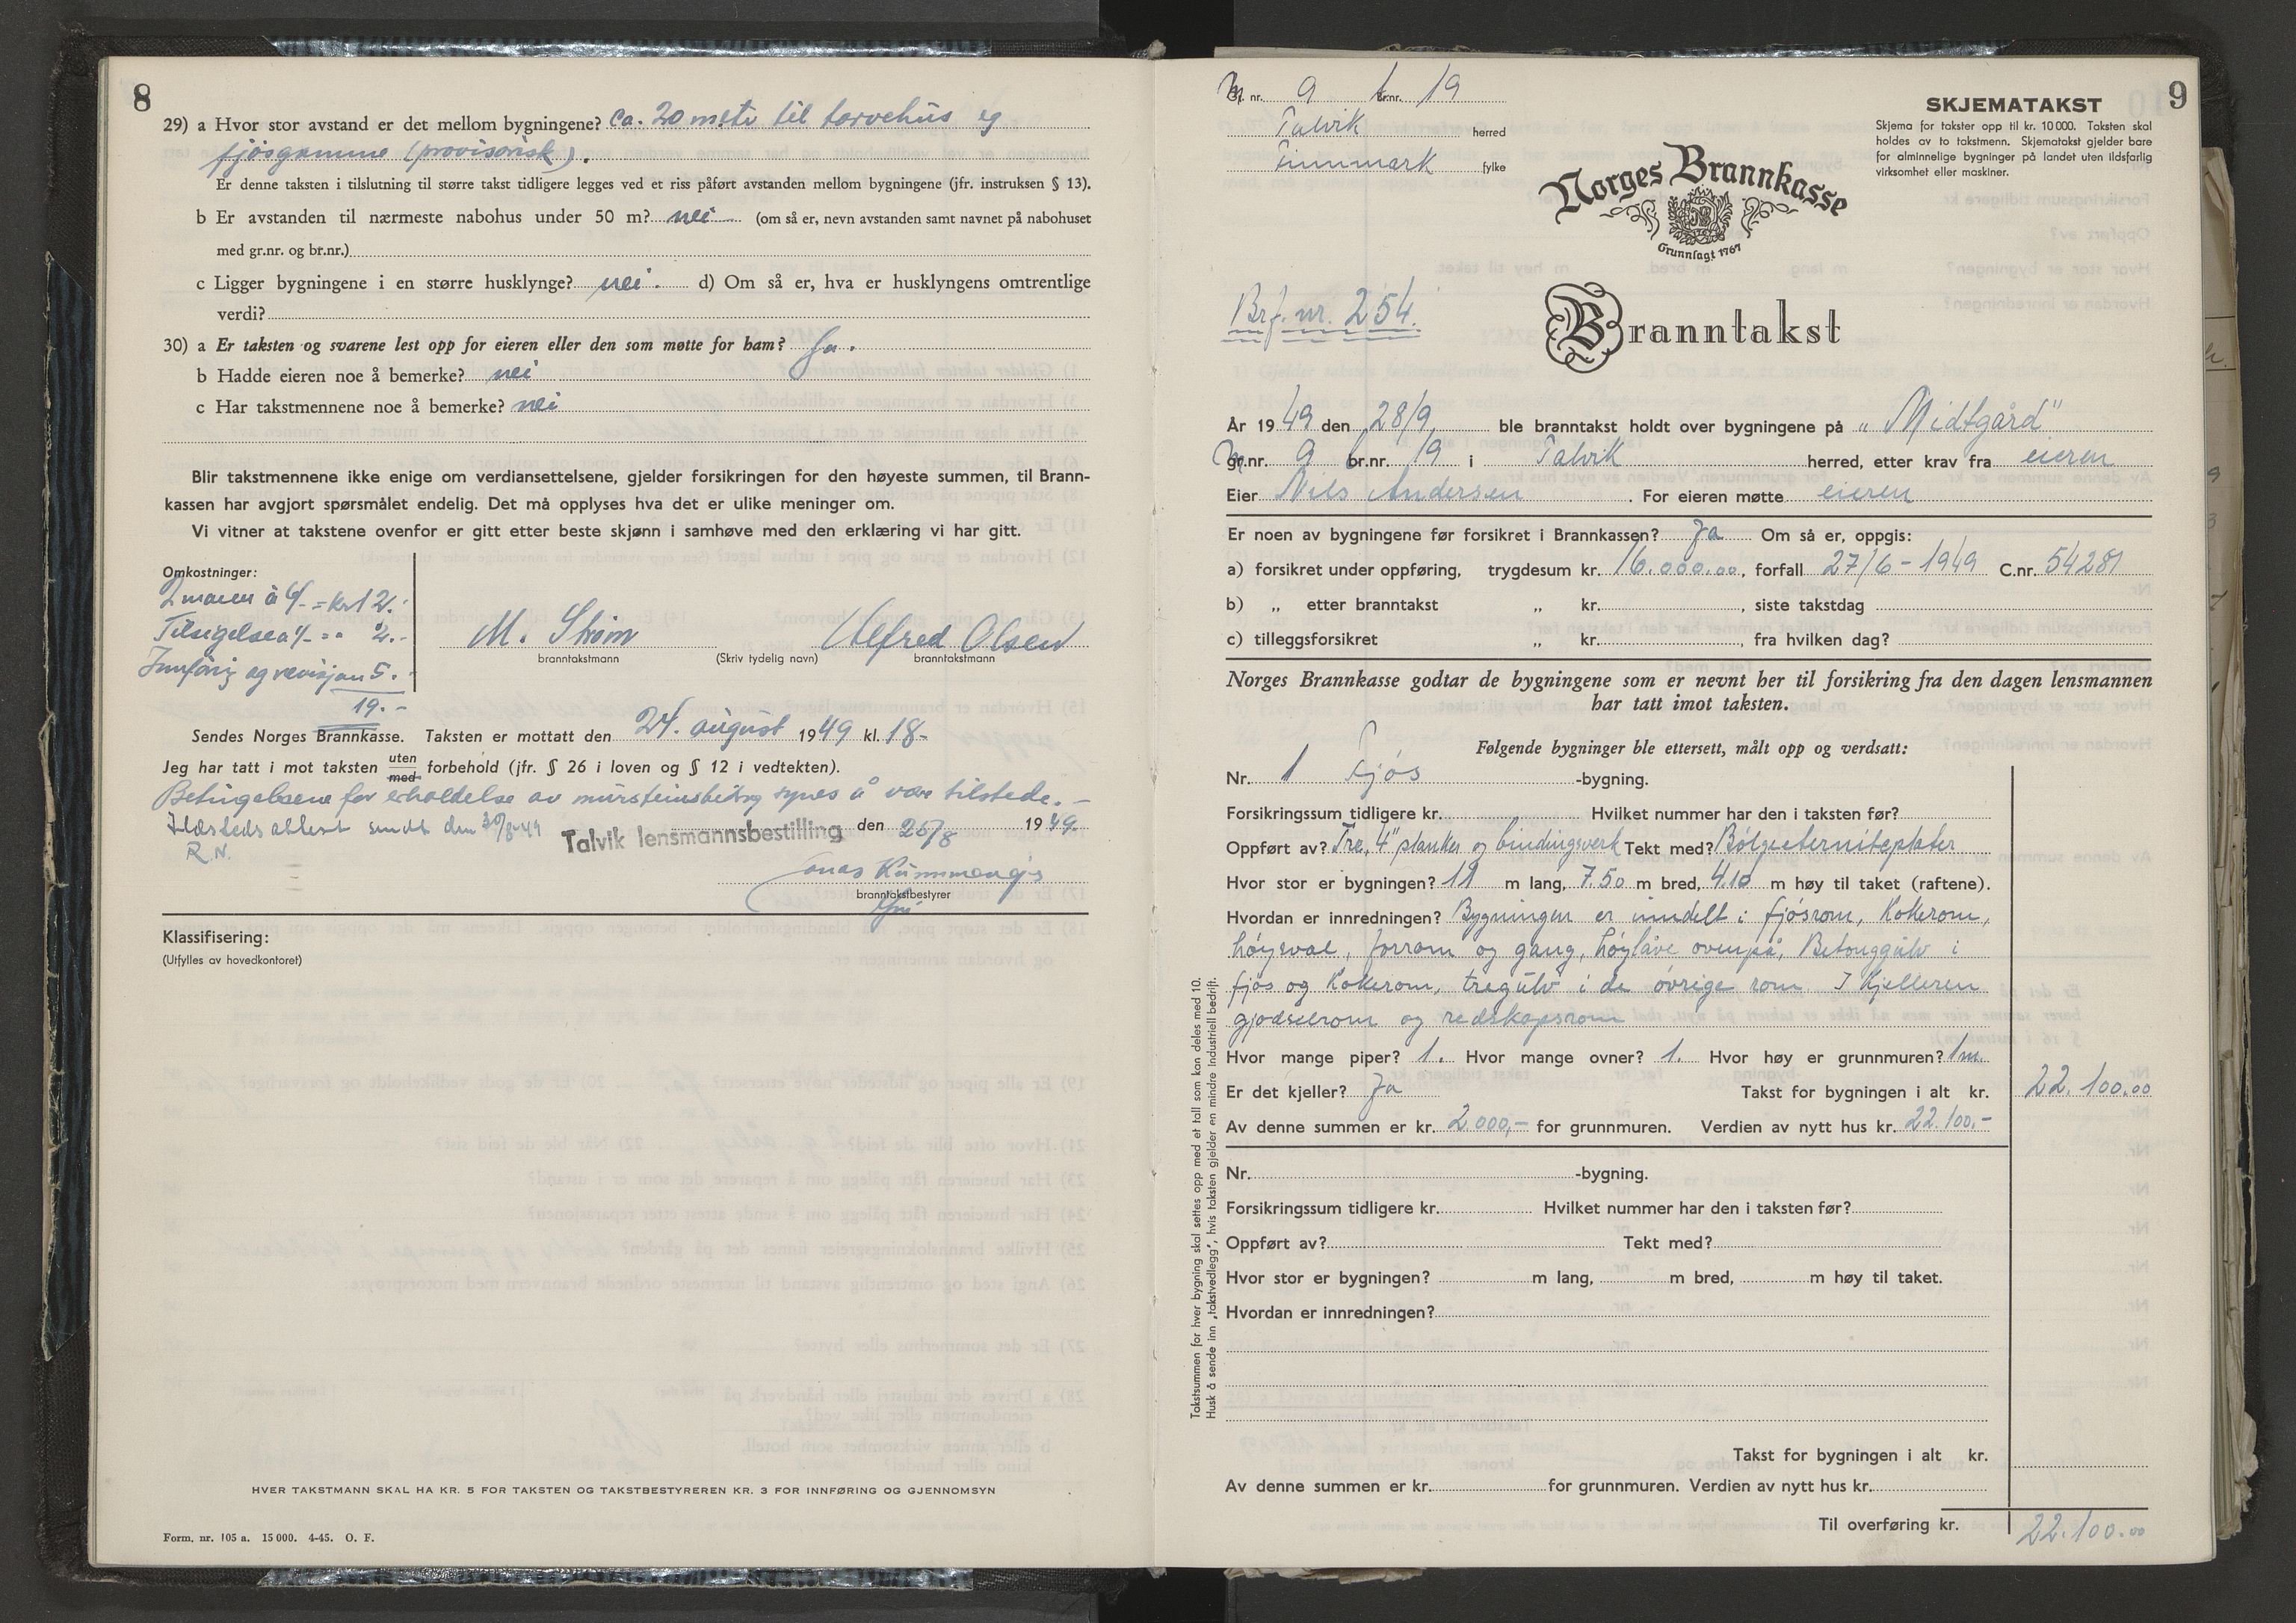 8
29) a Hvor stor avstand er det mellom bygningene? Ca. 20 metr til torvehus og
fjøsgamme (provisorisk).
Er denne taksten i tilslutning til større takst tidligere legges ved et riss påført avstanden mellom bygningene (jfr. instruksen § 13).
b Er avstanden til nærmeste nabohus under 50 m? nei (om så er, nevn avstanden samt navnet på nabohuset
med gr.nr. og br.nr.)
c Ligger bygningene i en større husklynge? nei. d) Om så er, hva er husklyngens omtrentlige
verdi?
30) a Er taksten og svarene lest opp for eieren eller den som møtte for ham? Ja.
b Hadde eieren noe å bemerke? nei
c Har takstmennene noe å bemerke? nei
Blir takstmennene ikke enige om verdiansettelsene, gjelder forsikringen for den høyeste summen, til Brann-
kassen har avgjort spørsmålet endelig. Det må opplyses hva det er ulike meninger om.
Vi vitner at takstene ovenfor er gitt etter beste skjønn i samhøve med den erklæring vi har gitt.
Omkostninger:
2 mann à 6/- = kr 12.-
Tilsigelse a/- " " 2.-
Innføring og revisjon 5.-
19.-
M. Strøm Alfred Olsen
branntakstmann (Skriv tydelig navn) branntakstmann
Sendes Norges Brannkasse. Taksten er mottatt den 24. august 1949 kl. 18-
Jeg har tatt i mot taksten uten
med forbehold (jfr. § 26 i loven og § 12 i vedtekten).
Betingelsene for erholdelse av mursteinsbidrag synes å være tilstede. -
Ildsteds attest sendt den 30/8-49
R.N.
Talvik lensmannsbestilling den 25/8 1949.
branntakstbestyrer
Klassifisering:
(Utfylles av hovedkontoret)
HVER TAKSTMANN SKAL HA KR. 5 FOR TAKSTEN OG TAKSTBESTYREREN KR. 3 FOR INNFØRING OG GJENNOMSYN
Form. nr. 105 a. 15 000. 4-45. O. F.
9
Gr. nr. 9 br.nr. 19
Talvik herred
Finnmark fylke
SKJEMATAKST
Skjema for takster opp til kr. 10 000. Taksten skal
holdes av to takstmenn. Skjematakst gjelder bare
for alminnelige bygninger på landet uten ildsfarlig
virksomhet eller maskiner.
Norges Brannkasse
Grunnlagt 1767
Brf. nr. 254.
Branntakst
År 1949 den 28/9 ble branntakst holdt over bygningene på „Midtgård"
gr.nr. 9 br.nr. 19 i Talvik herred, etter krav fra eieren
Eier Nils Andersen. For eieren møtte eieren
Er noen av bygningene før forsikret i Brannkassen? Ja Om så er, oppgis:
a) forsikret under oppføring, trygdesum kr. 16.000.00, forfall 27/6-1949 C.nr. 54281
b) „ etter branntakst „ kr. , siste takstdag
c) tilleggsforsikret „ kr. , fra hvilken dag?
Norges Brannkasse godtar de bygningene som er nevnt her til forsikring fra den dagen lensmannen
har tatt imot taksten.
Følgende bygninger ble ettersett, målt opp og verdsatt:
Nr. 1 Fjøs -bygning.
Forsikringssum tidligere kr. Hvilket nummer har den i taksten før?
Oppført av? Tre, 4" planker og bindingsverk Tekt med? Bølgeeterniteplater
Hvor stor er bygningen? 11 m lang, 7.50 m bred, 4.10 m høy til taket (raftene).
Hvordan er innredningen? Bygningen er inndelt i fjøsrom, Kokerom,
høysval, forrom og gang, høylåve ovenpå, Betonggulv i
fjøs og Kokerom, tregulv i de øvrige rom I Kjelleren
gjødselrom og redskapsrom
Hvor mange piper? 1. Hvor mange ovner? 1. Hvor høy er grunnmuren? 1m.
Er det kjeller? Ja Takst for bygningen i alt kr. 22.100.00
Av denne summen er kr. 2.000,- for grunnmuren. Verdien av nytt hus kr. 22.100,-
Nr. -bygning.
Forsikringssum tidligere kr. Hvilket nummer har den i taksten før?
Oppført av? Tekt med?
Hvor stor er bygningen? m lang, m bred, m høy til taket.
Hvordan er innredningen?
Takst for bygningen i alt kr.
Av denne summen er kr. for grunnmuren. Verdien av nytt hus kr.
Til overføring kr. 22.100.00
Takstsummen for hver bygning skal settes opp med et tall som kan deles med 10.
Husk å sende inn „takstvedlegg", hvis taksten gjelder en mindre industriell bedrift.